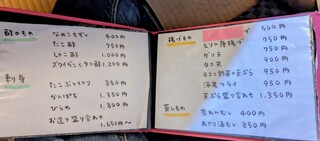 酢のもの
なめこもずく 400円
たこ酢 950円
しめこ酢 1,000円
ズワイがにとタコ酢 1,200円
刺身
たこぶつ切り 850円
かんぱち 1,350円
ひらめ 1,800円
お造り盛り合わせ 1,650円〜
揚げもの
500円
とりの唐揚げ 750円
ゲソ天 900円
タコ天 900円
キスと野菜の天ぷら 950円
海老フライ 950円
天ぷら盛り合わせ 1,350円
蒸しもの
茶わんむし 400円
あさり酒むし 850円